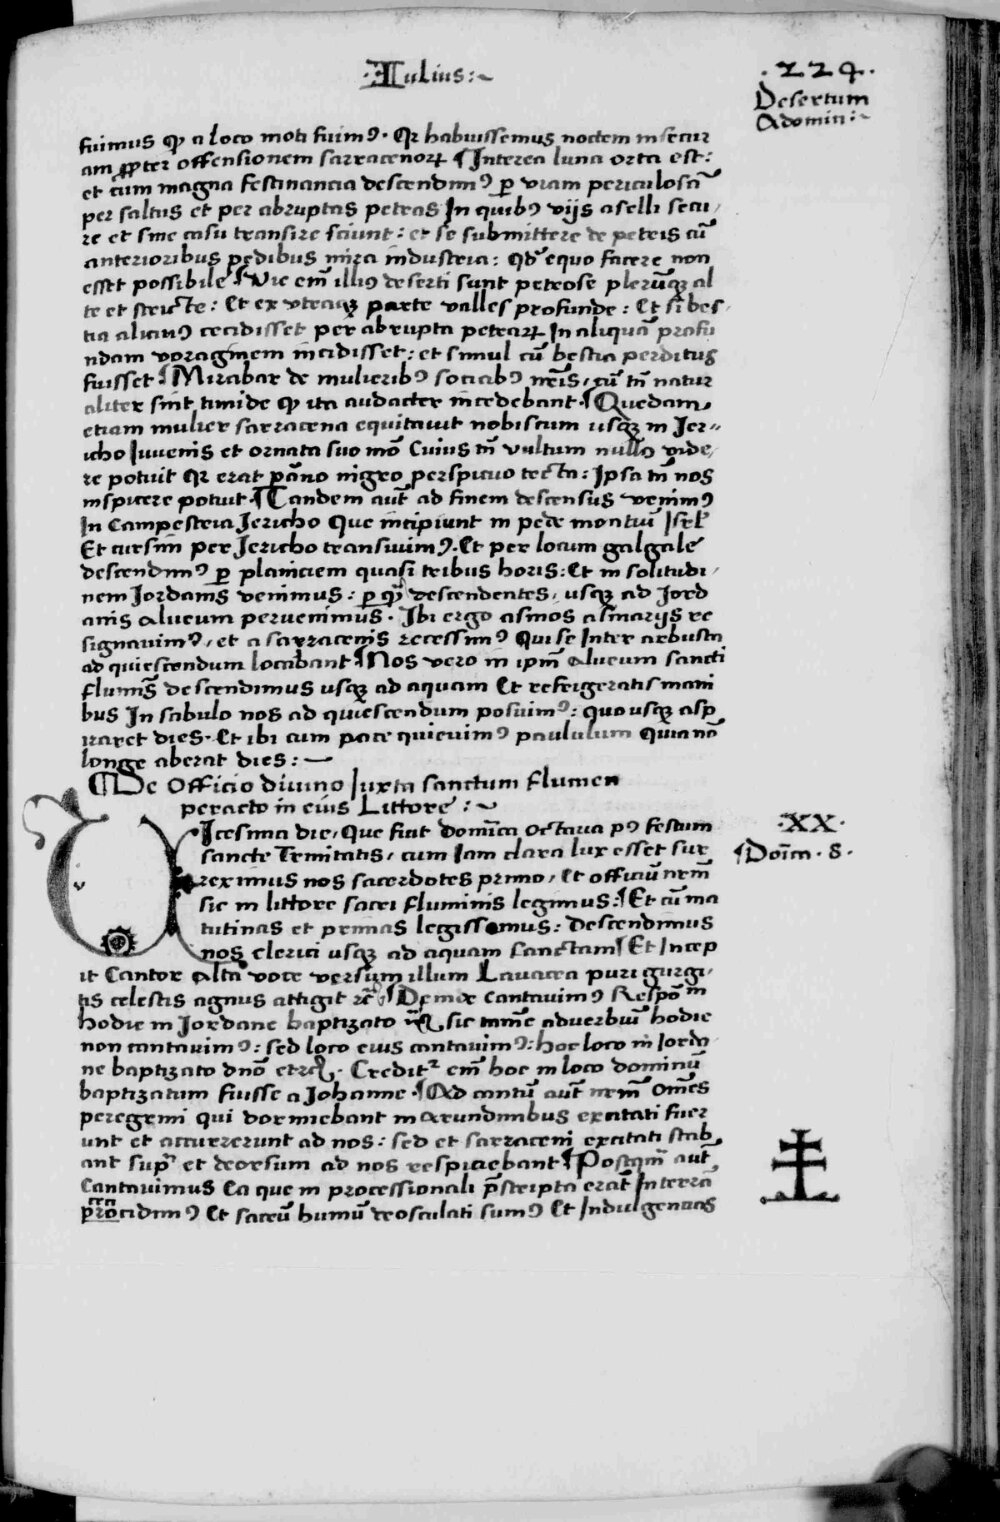 ·Iulius:~
·224·
Desertum
Adomin:~
fuimus qꝫ a loco moti fuimꝰ· Qꝛ habuissemus noctem insecur
am ꝓpter offensionem sarracenoꝝ ¶Interea luna orta est:
et cum magna festinancia descendimꝰ ꝑ viam periculosā
per saltus et per abruptas petras In quibꝰ viis aselli secu
re et sine casu transire sciunt: et se submittere de petris cū
anterioribus pedibus mira industria: Qđ equo facere non
esset possibile ¶Vie em̄ illiꝰ deserti sunt petrose plerūqꝫ al
te et stricte: Et ex utraqꝫ parte valles profunde: Et si bes
tia alicuiꝰ cecidisset per abrupta petraꝝ In aliquā profu
ndam voraginem incidisset: et simul cū bestia perditus
fuisset ¶Mirabar de mulieribꝰ sociabꝰ nr̄is, cū tn̄ natur
aliter sint timide qꝫ ita audacter incedebant ¶Quedam
etiam mulier sarracena equitavit nobiscum usqꝫ in Jer
icho Iuvenis et ornata suo mō Cuius tn̄ vultum nullꝰ vide
re potuit Qꝛ erat pāno nigro perspicuo tecta: Ipsa tn̄ nos
inspicere potuit ¶Tandem aut̄ ad finem descensus venimꝰ
In Campestria Jericho Que incipiunt in pede montiū Isrl̄
Et cursim per Jericho transivimꝰ. Et per locum galgale
descendimꝰ ꝑ planiciem quasi tribus horis: Et in solitudi
nem Jordanis venimus: ꝑ qua descendentes, usqꝫ ad Jord
anis alveum pervenimus. Ibi ergo asinos asinariis re
signavimꝰ, et a sarracenis recessimꝰ Qui se Inter arbusta
ad quiescendum locabant ¶Nos vero in ipm̄ alveum sancti
fluminis descendimus usqꝫ ad aquam Et refrigeratis mani
bus In sabulo nos ad quiescendum posuimꝰ: quousqꝫ asp
iraret dies. Et ibi cum pace quievimꝰ paululum Quia nō
longe aberat dies:—
¶De Officio divino Juxta sanctum flumen
peracto in eius Littore:~
Vicesima die, Que fuit Dominica Octava pꝰ festum
sancte Trinitatis, cum Iam clara lux esset sur
reximus nos sacerdotes primo, Et officiū nrm̄
sic in littore sacri fluminis legimus: ¶Et cū ma
tutinas et primas legissemus: Descendimus
nos clerici usqꝫ ad aquam Sanctam ¶Et Incep
it Cantor Alta voce versum illum Lavacra puri gurgi
tis celestis agnus attigit ꝛc̄ ¶Deinde Cantavimꝰ Respō m̄
Hodie in Jordane baptizato sic tamē adverbiū hodie
non cantavimꝰ: sed loco eius cantavimꝰ: hoc loco in Jorda
ne baptizato dn̄o etc. Creditᷣ em̄ hoc in loco dominū
baptizatum fuisse a Johanne· ¶Ad cantū aut̄ nrm̄ Om̄es
peregrini qui dormiebant in arundinibus excitati fuer
unt et accurrerunt ad nos: sed et sarraceni excitati stab
ant supra et deorsum ad nos respiciebant ¶Postqm̄ aut̄
Cantavimus Ea que in processionali p̄scripta erāt In terrā
procidimꝰ Et sacrū humū deosculati sumꝰ Et Indulgencias
·XX·
¶Doīca·8·